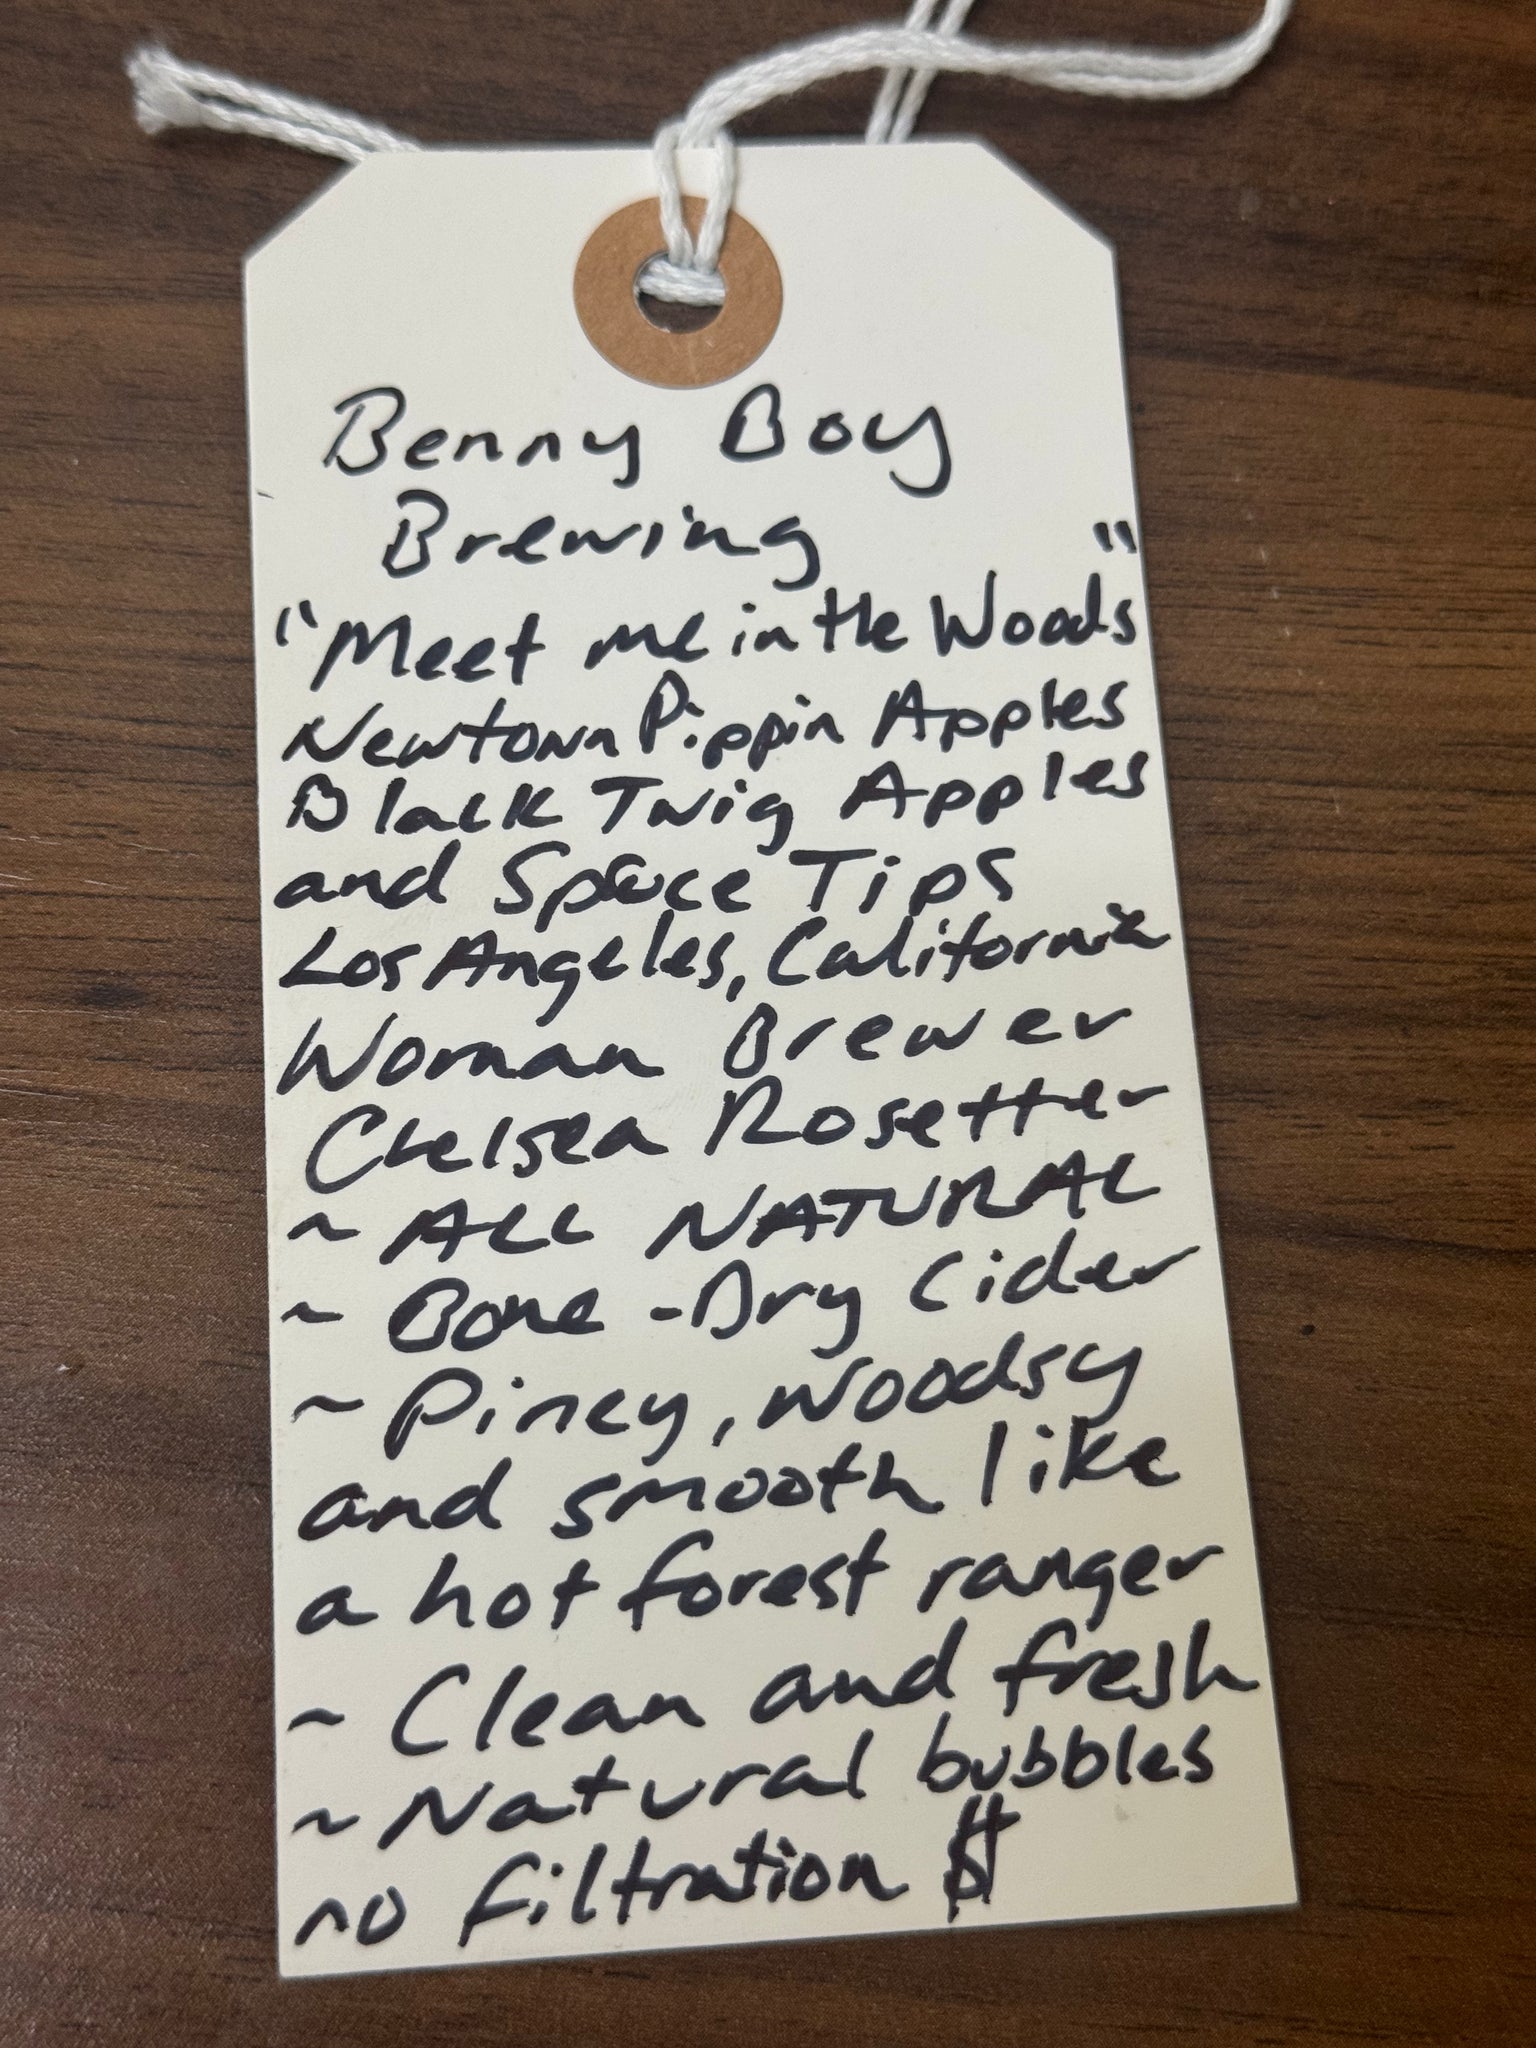 Benny Boy
Brewing
"Meet me in the Woods"
Newtown Pippin Apples
Black Twig Apples
and Spruce Tips
Los Angeles, California
Woman Brewer
Chelsea Rosetter
~ ALL NATURAL
~ Bone-Dry Cider
~ Piney, woodsy
and smooth like
a hot forest ranger
~ Clean and fresh
~ Natural bubbles
no filtration $